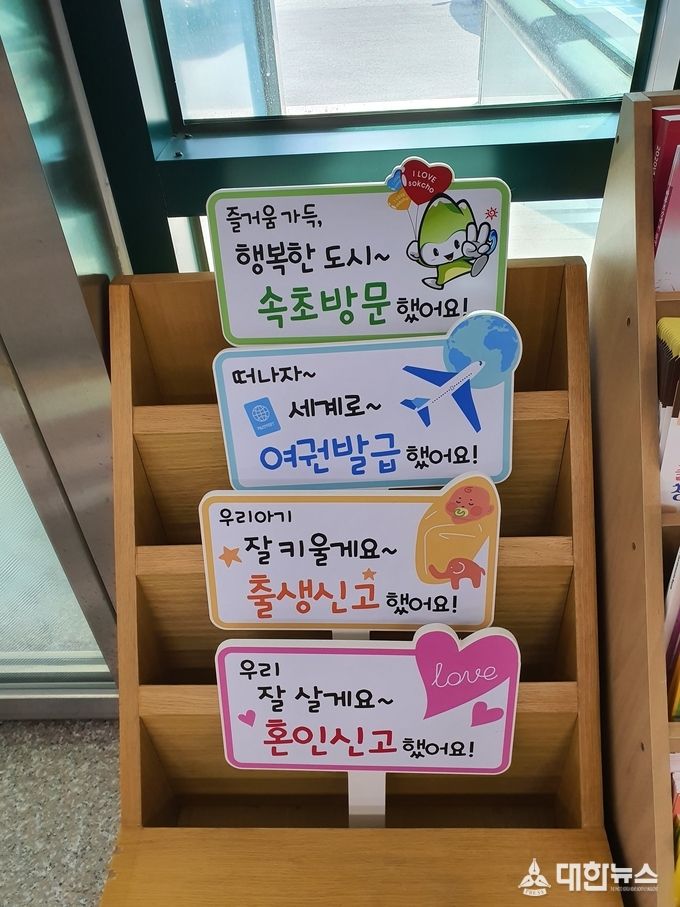 I LOVE
sokcho
즐거움 가득,
행복한 도시~
속초방문 했어요!
떠나자~
세계로~
PASSPORT
여권발급 했어요!
우리아기
잘 키울게요~
출생신고 했어요!
우리
잘 살게요~
love
혼인신고 했어요!
대한뉴스